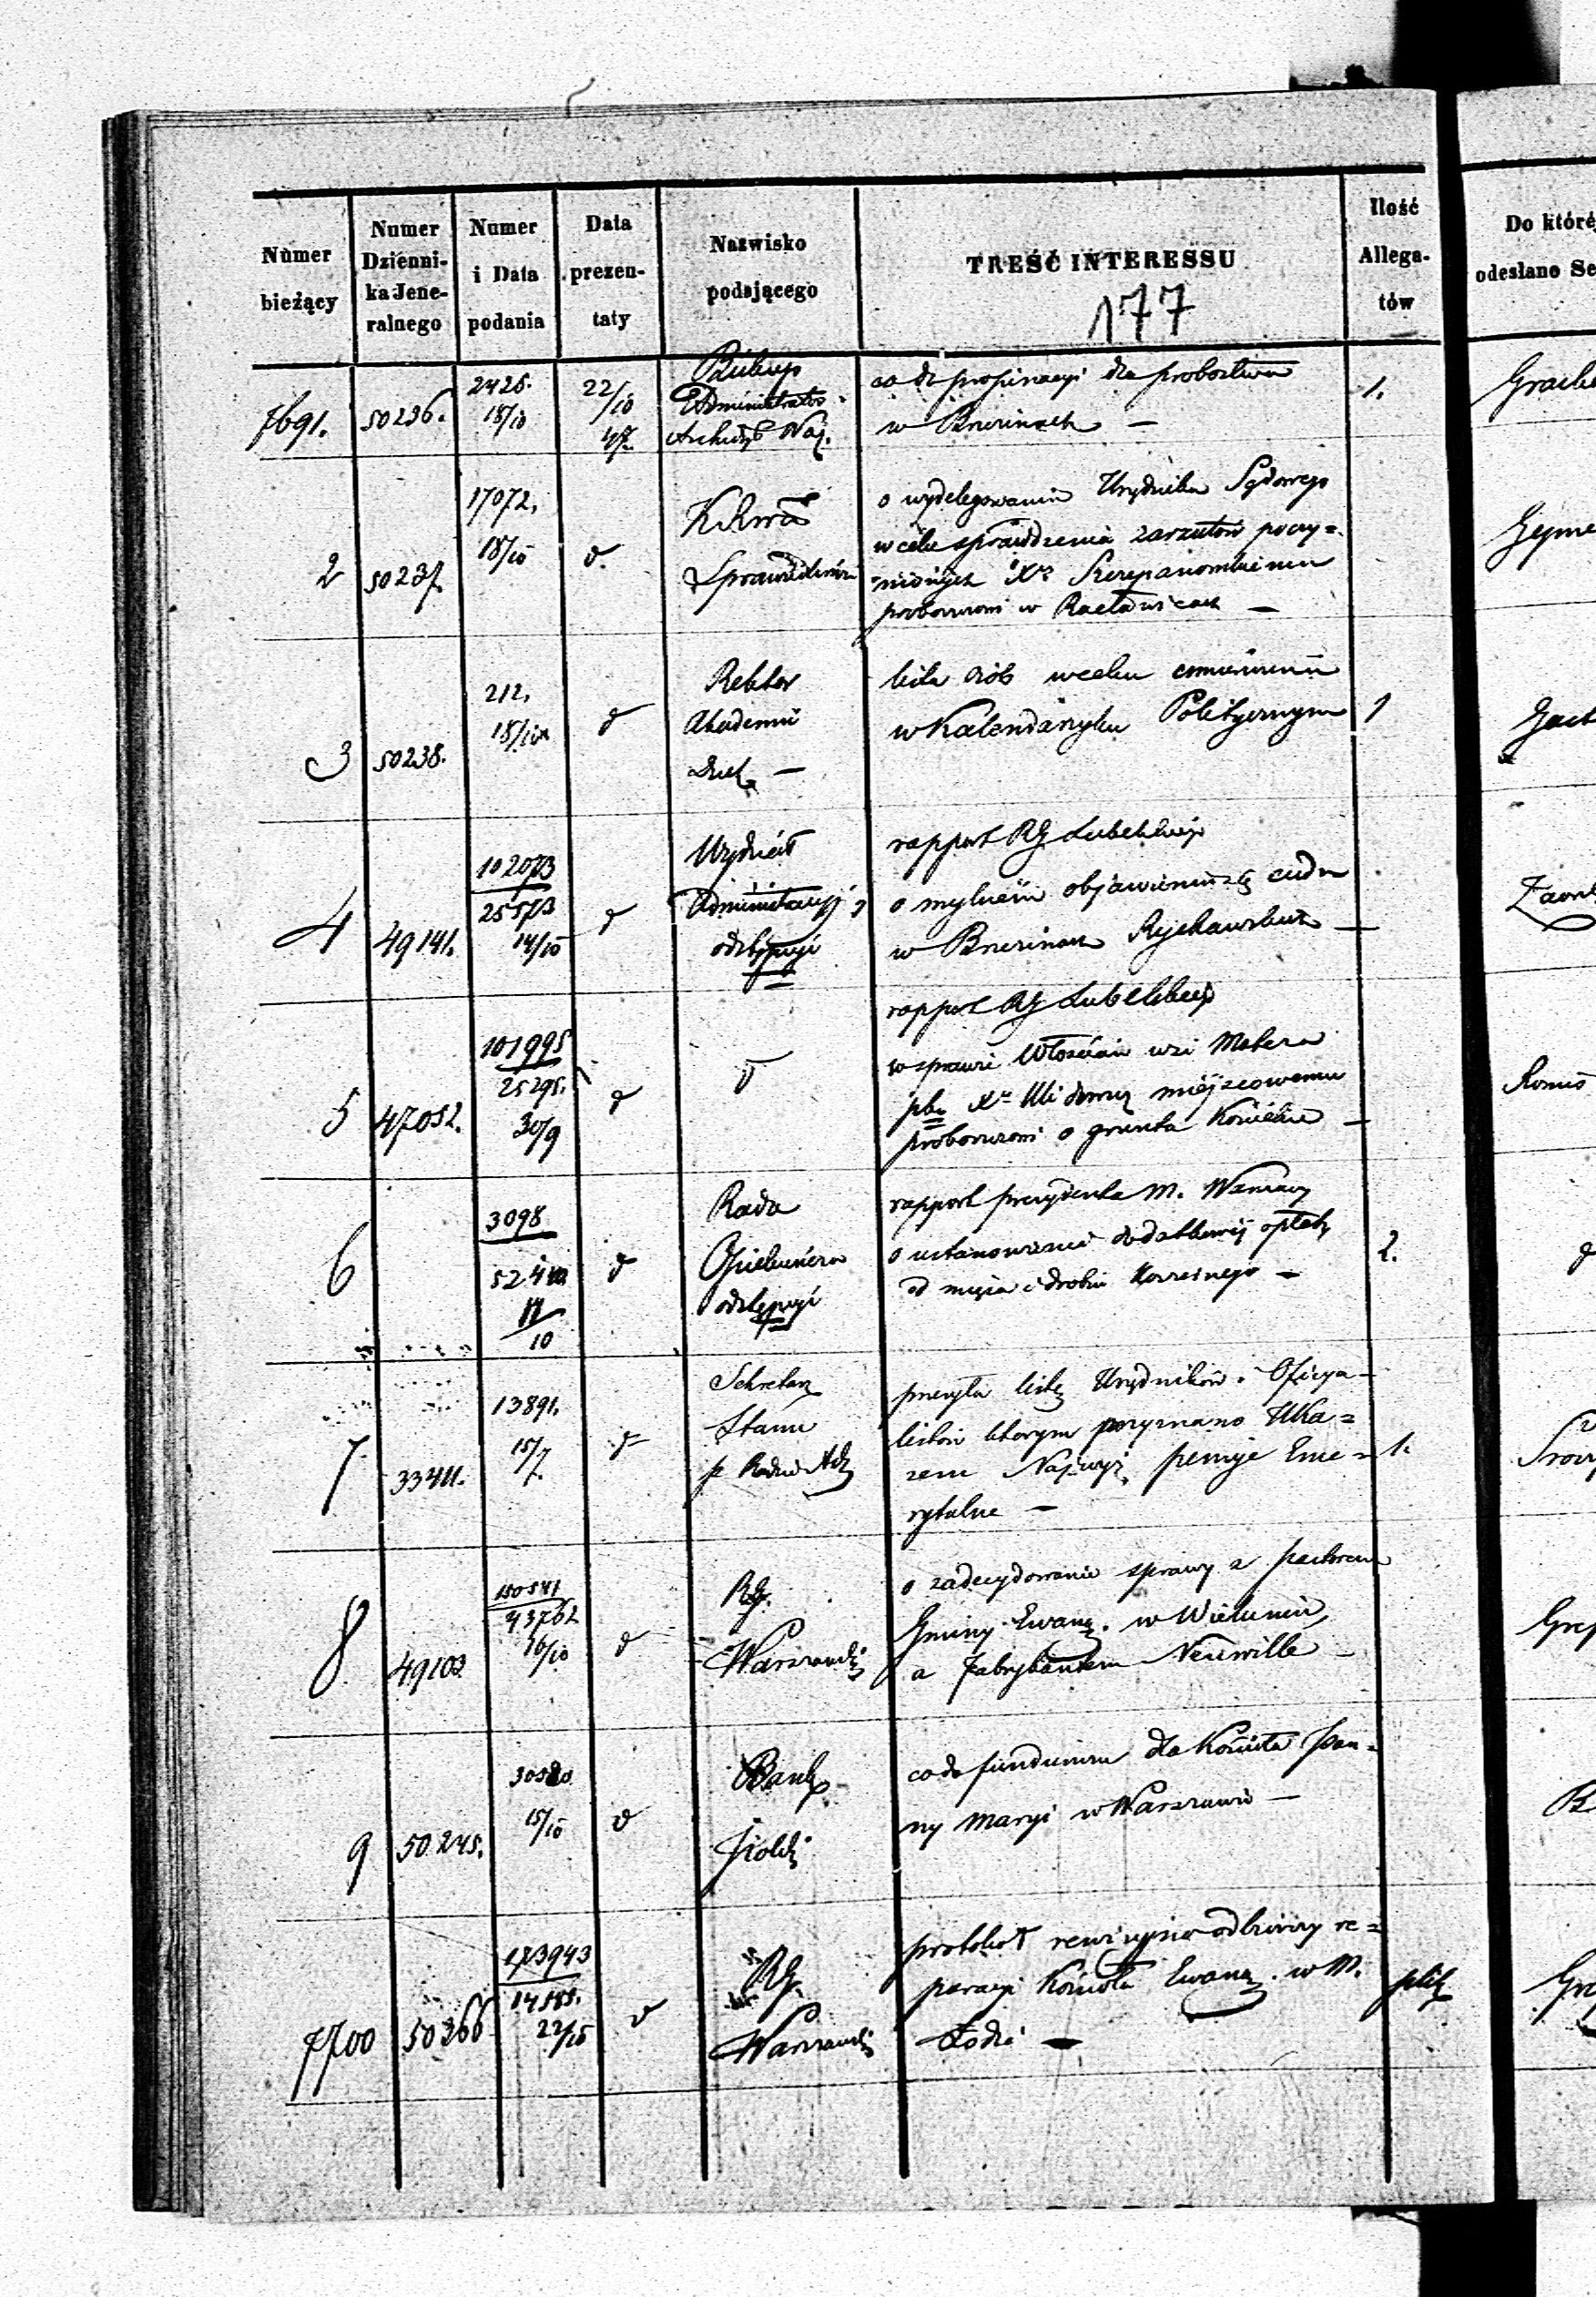 Numer bieżący
Numer Dzienni- ka Jene- ralnego
Numer i Data podania
Data prezen- taty
Nazwisko podającego
TREŚĆ INTERESSU
177
Ilość Allega- tów
Do które
odesłano Se
7691.
50236.
2425.
18/10
22/10
47.
Biskup
Administrator
co do propinacyi dla probostwa
w Brzezinach —
1.
2
50237.
17072.
18/10
d.
K R
Sprawiedliwości
o wydelegowanie Urzędnika Sądowego
w celu sprawdzenia zarzutów poczy=
nionych Xu Szczepanowskiemu
proboszczowi w Racławicach —
3
50238.
212.
18/10
d
Rektor
Akademii
Duch —
lista osób w celu umieszczenia
w Kalendarzyku Politycznym
1
4
49141.
102073
25573
14/10
d
Wydział
Administracyj
odstępuje
rapport RG Lubelskiego
o mylnem objawieniu się cudu
w Brzezinach
5
47052.
101995
25295.
30/9
d
d
rapport RG Lubelskiego
w sprawie Włościan wsi
miejscowemu
proboszczowi o grunta Kościelne —
6
3098
52410
17
10
d
Rada
Opiekuńcza
odstępuje
rapport prezydenta m. Warszawy
o ustanowienie dodatkowej opłaty
od mięsa i drobiu Koszernego —
2.
d
7
33411.
13891.
15/7.
d
Sekretarz
Stanu
p Radzie Adm
przesyła listę Urzędników i Oficya-
listów którym przyznano Uka=
zem Najwyż. pensyje Eme=
rytalne —
1.
8
49102
150541
43762
16/10
d
RG.
Warszawski
o zadecydowanie sprawy z pastorem
Gminy Ewang. w Wieluniu,
a Fabrykantem Neuwille —
9
50245.
30580
15/10
d
Bank
Polski
co do funduszu dla Kościoła Pan=
ny Maryi w Warszawie —
7700
50266
173943
14585.
22/10
d
RG.
Warszawski
protokół rewizyjno odbiorczy re=
peracyi Kościoła Ewang. w M.
Łodzi —
plik